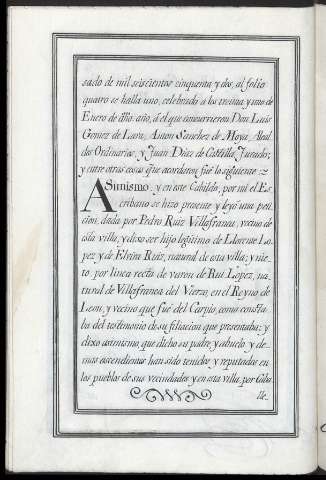 sado de mil seiscientos cinquenta y dos, al folio
quatro se halla uno, celebrado a los treinta y uno de
Enero de dho. año, á el que concurrieron Don Luis
Gomez de Lara, Anton Sanchez de Moya, Alcal
des Ordinarios y Juan Diez de Castilla, Jurado;
y entre otras cosas que acordaron fué lo siguiente
Asimismo y en este Cabildo, por mi el Es
cribano se hizo presente y leyó una peti
cion, dada por Pedro Ruiz Villafranca, vecino de
esta villa, y dixo ser hijo legitimo de Llorente Lo
pez y de Elvira Ruiz, natural de esta villa; y nie
to por linea recta de varon de Rui Lopez, na
tural de Villafranca del Vierzo, en el Reyno de
Leon, y vecino que fué del Carpio, como consta
ba del testimonio de su filiacion que presentaba; y
dixo asimismo, que dicho su padre y abuelo y de
mas ascendientes han sido tenidos y reputados en
los pueblos de sus vecindades y en esta villa, por Caba
lle